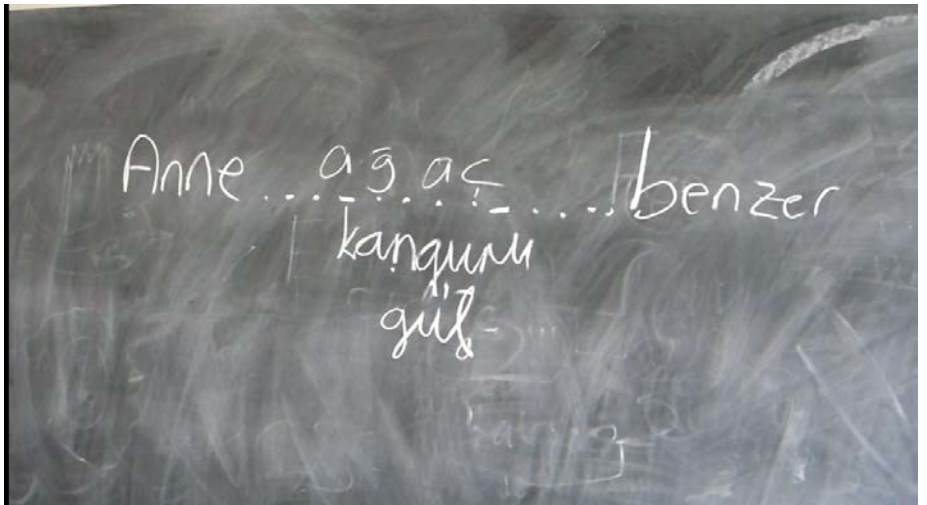 Anne ... ağaç ..... benzer
kanguru
gül